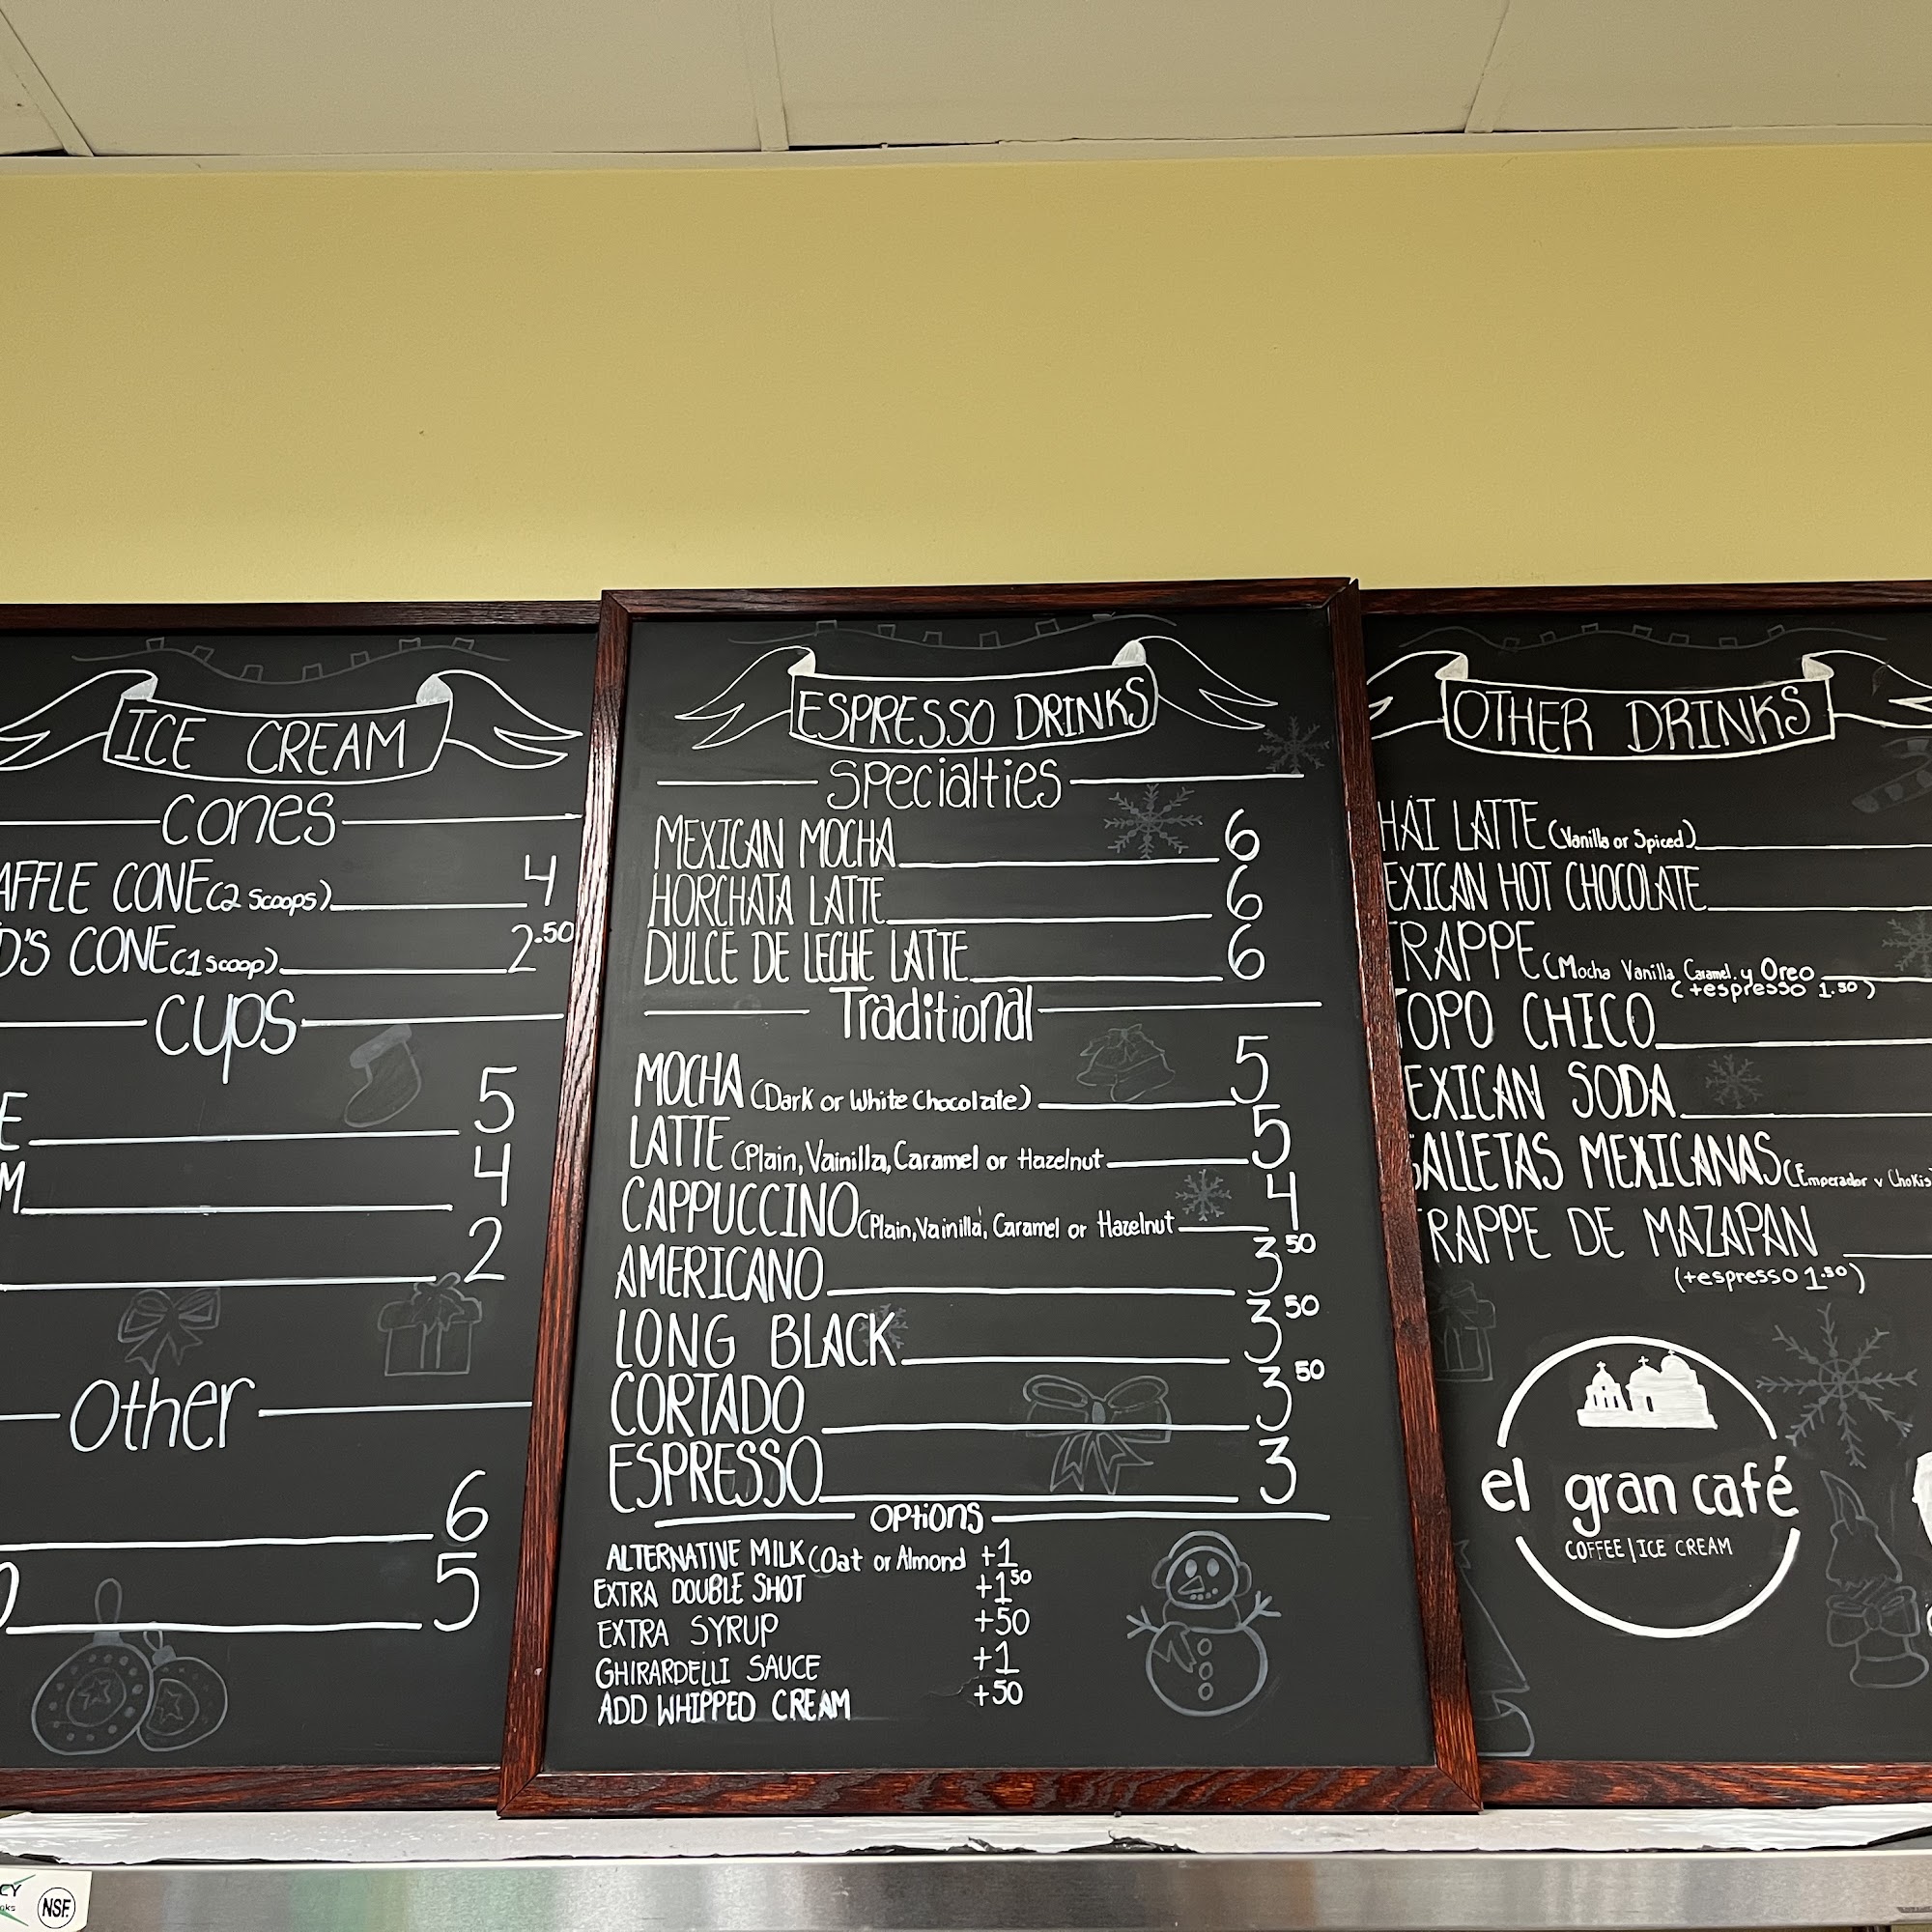 ICE CREAM
cones
AFFLE CONE (2 scoops) 4
D'S CONE (1 scoop) 2.50
cups
E 5
M 4
2
Other
6
5
ESPRESSO DRINKS
Specialties
MEXICAN MOCHA 6
HORCHATA LATTE 6
DULCE DE LECHE LATTE 6
Traditional
MOCHA (Dark or White Chocolate) 5
LATTE (Plain, Vainilla, Caramel or Hazelnut 5
CAPPUCCINO (Plain, Vainilla, Caramel or Hazelnut 4
AMERICANO 3 50
LONG BLACK 3 50
CORTADO 3 50
ESPRESSO 3
Options
ALTERNATIVE MILK (Oat or Almond +1
EXTRA DOUBLE SHOT +1 50
EXTRA SYRUP +50
GHIRARDELLI SAUCE +1
ADD WHIPPED CREAM +50
OTHER DRINKS
HAI LATTE (Vanilla or Spiced)
EXICAN HOT CHOCOLATE
RAPPE (Mocha Vanilla Caramel y Oreo
(+espresso 1.50)
OPO CHICO
EXICAN SODA
ALLETAS MEXICANAS (Emperador y Chokis
RAPPE DE MAZAPAN
(+espresso 1.50)
el gran café
COFFEE | ICE CREAM
CY
NSF